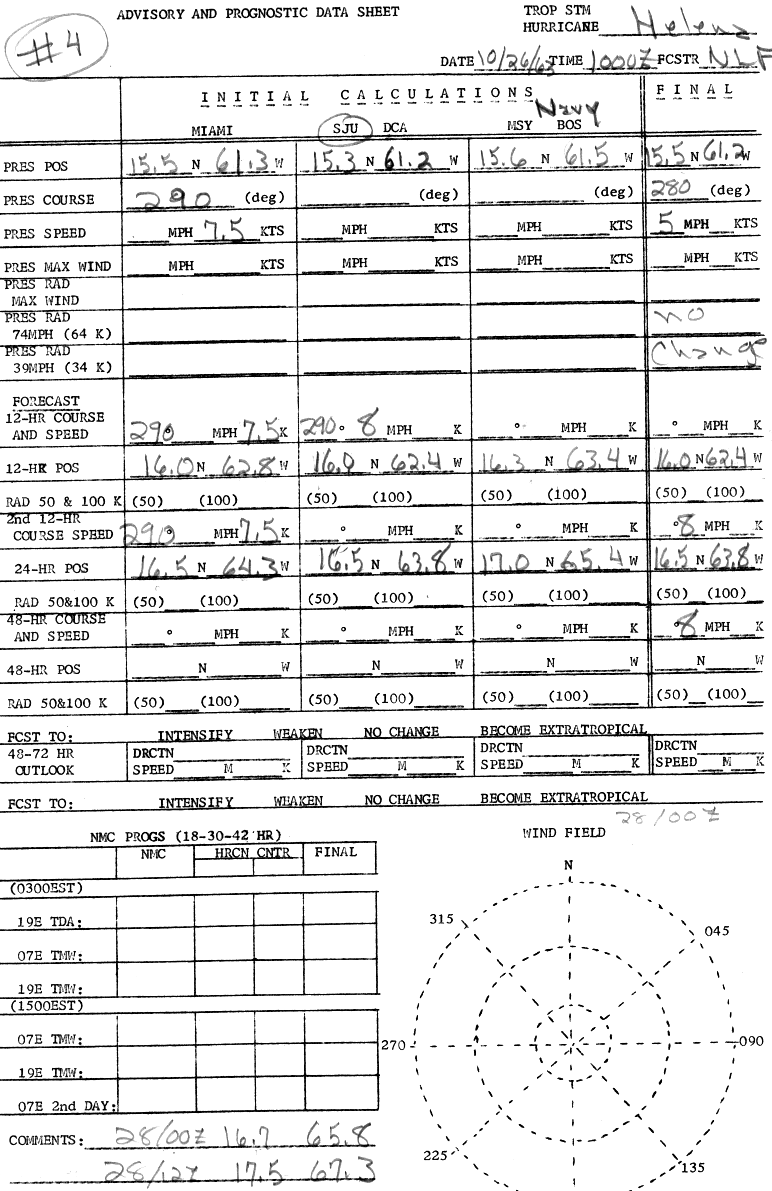 #4
ADVISORY AND PROGNOSTIC DATA SHEET
TROP STM
HURRICANE Helena
DATE 10/26/63 TIME 1000Z FCSTR NLF
INITIAL CALCULATIONS FINAL
Navy
MIAMI SJU DCA MSY BOS
PRES POS 15.5 N 61.3 W 15.3 N 61.2 W 15.6 N 61.5 W 15.5 N 61.2 W
PRES COURSE 290 (deg) (deg) (deg) 280 (deg)
PRES SPEED MPH 7.5 KTS MPH KTS MPH KTS 5 MPH KTS
PRES MAX WIND MPH KTS MPH KTS MPH KTS MPH KTS
PRES RAD
MAX WIND
PRES RAD no
74MPH (64 K)
PRES RAD Change
39MPH (34 K)
FORECAST
12-HR COURSE
AND SPEED 290° MPH 7.5 K 290° 8 MPH K ° MPH K ° MPH K
12-HR POS 16.0 N 62.8 W 16.0 N 62.4 W 16.3 N 63.4 W 16.0 N 62.4 W
RAD 50 & 100 K (50) (100) (50) (100) (50) (100) (50) (100)
2nd 12-HR
COURSE SPEED 290° MPH 7.5 K ° MPH K ° MPH K ° 8 MPH K
24-HR POS 16.5 N 64.3 W 16.5 N 63.8 W 17.0 N 65.4 W 16.5 N 63.8 W
RAD 50&100 K (50) (100) (50) (100) (50) (100) (50) (100)
48-HR COURSE
AND SPEED ° MPH K ° MPH K ° MPH K ° 8 MPH K
48-HR POS N W N W N W N W
RAD 50&100 K (50) (100) (50) (100) (50) (100) (50) (100)
FCST TO: INTENSIFY WEAKEN NO CHANGE BECOME EXTRATROPICAL
48-72 HR DRCTN DRCTN DRCTN DRCTN
OUTLOOK SPEED M K SPEED M K SPEED M K SPEED M K
FCST TO: INTENSIFY WEAKEN NO CHANGE BECOME EXTRATROPICAL
28/00Z
NMC PROGS (18-30-42 HR)
NMC HRCN CNTR FINAL
(0300EST)
19E TDA:
07E TMW:
19E TMW:
(1500EST)
07E TMW:
19E TMW:
07E 2nd DAY:
COMMENTS: 28/00Z 16.7 65.8
28/12Z 17.5 67.3
WIND FIELD
N
315 045
270 090
225 135